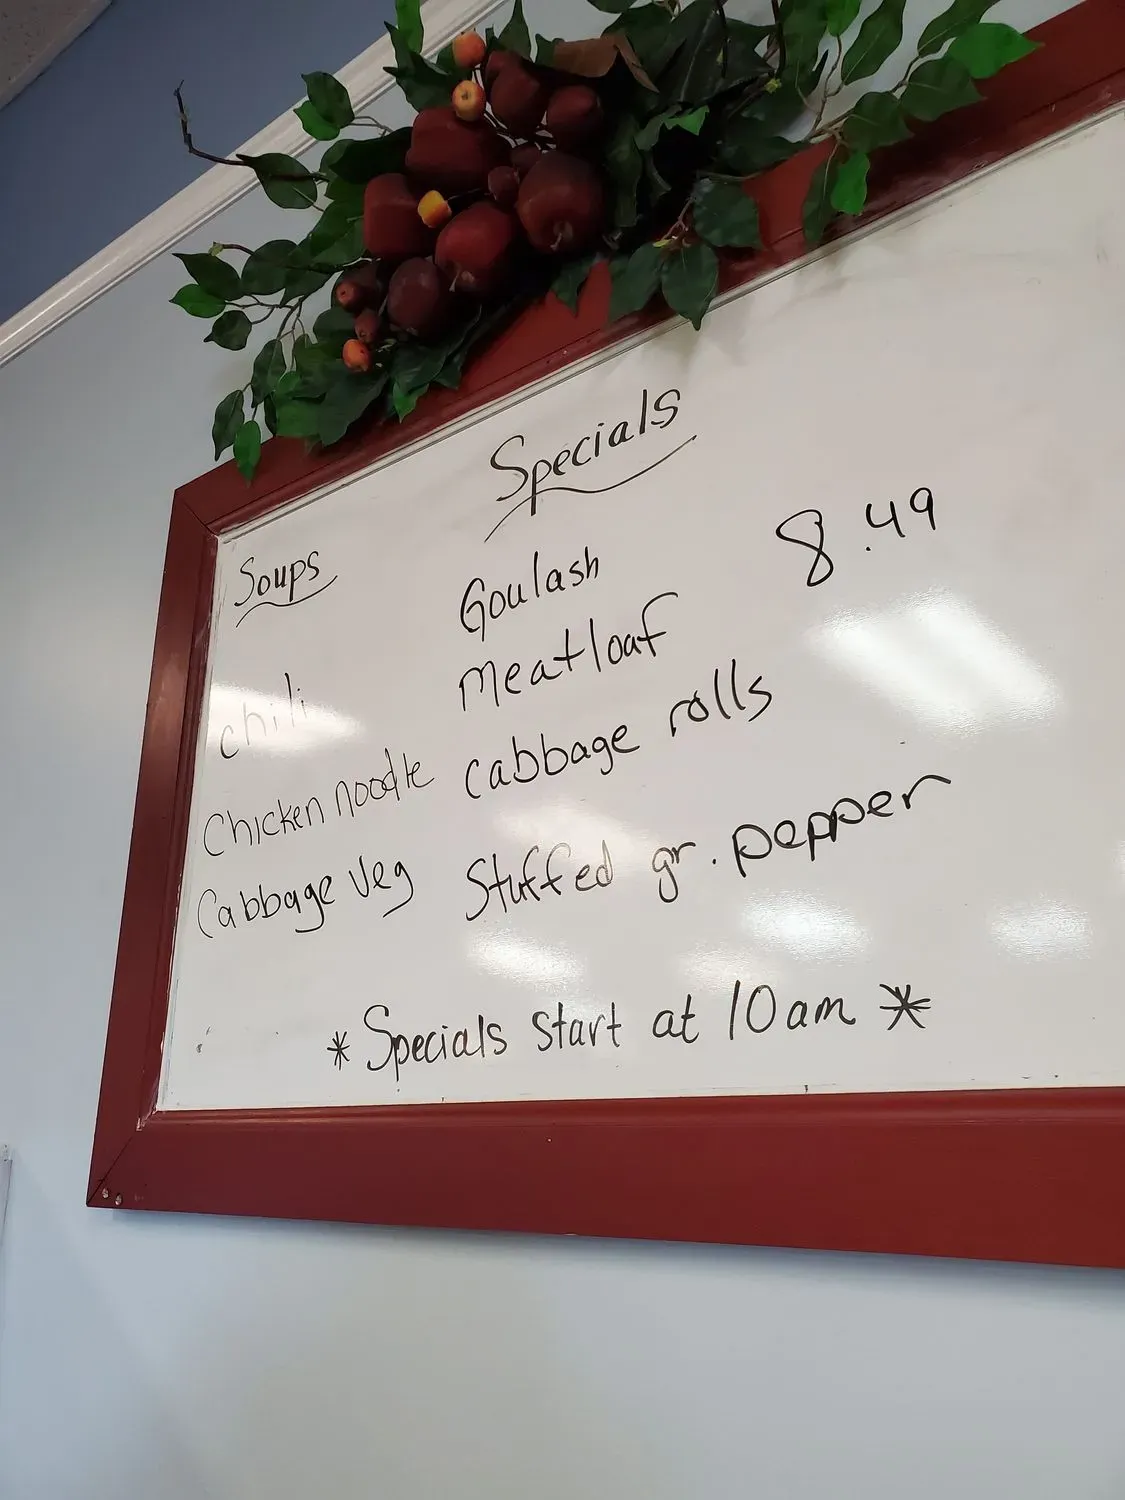 Specials
Soups
chili
Chicken noodle
Cabbage Veg
Goulash 8.49
meatloaf
cabbage rolls
Stuffed gr. pepper
* Specials start at 10am *